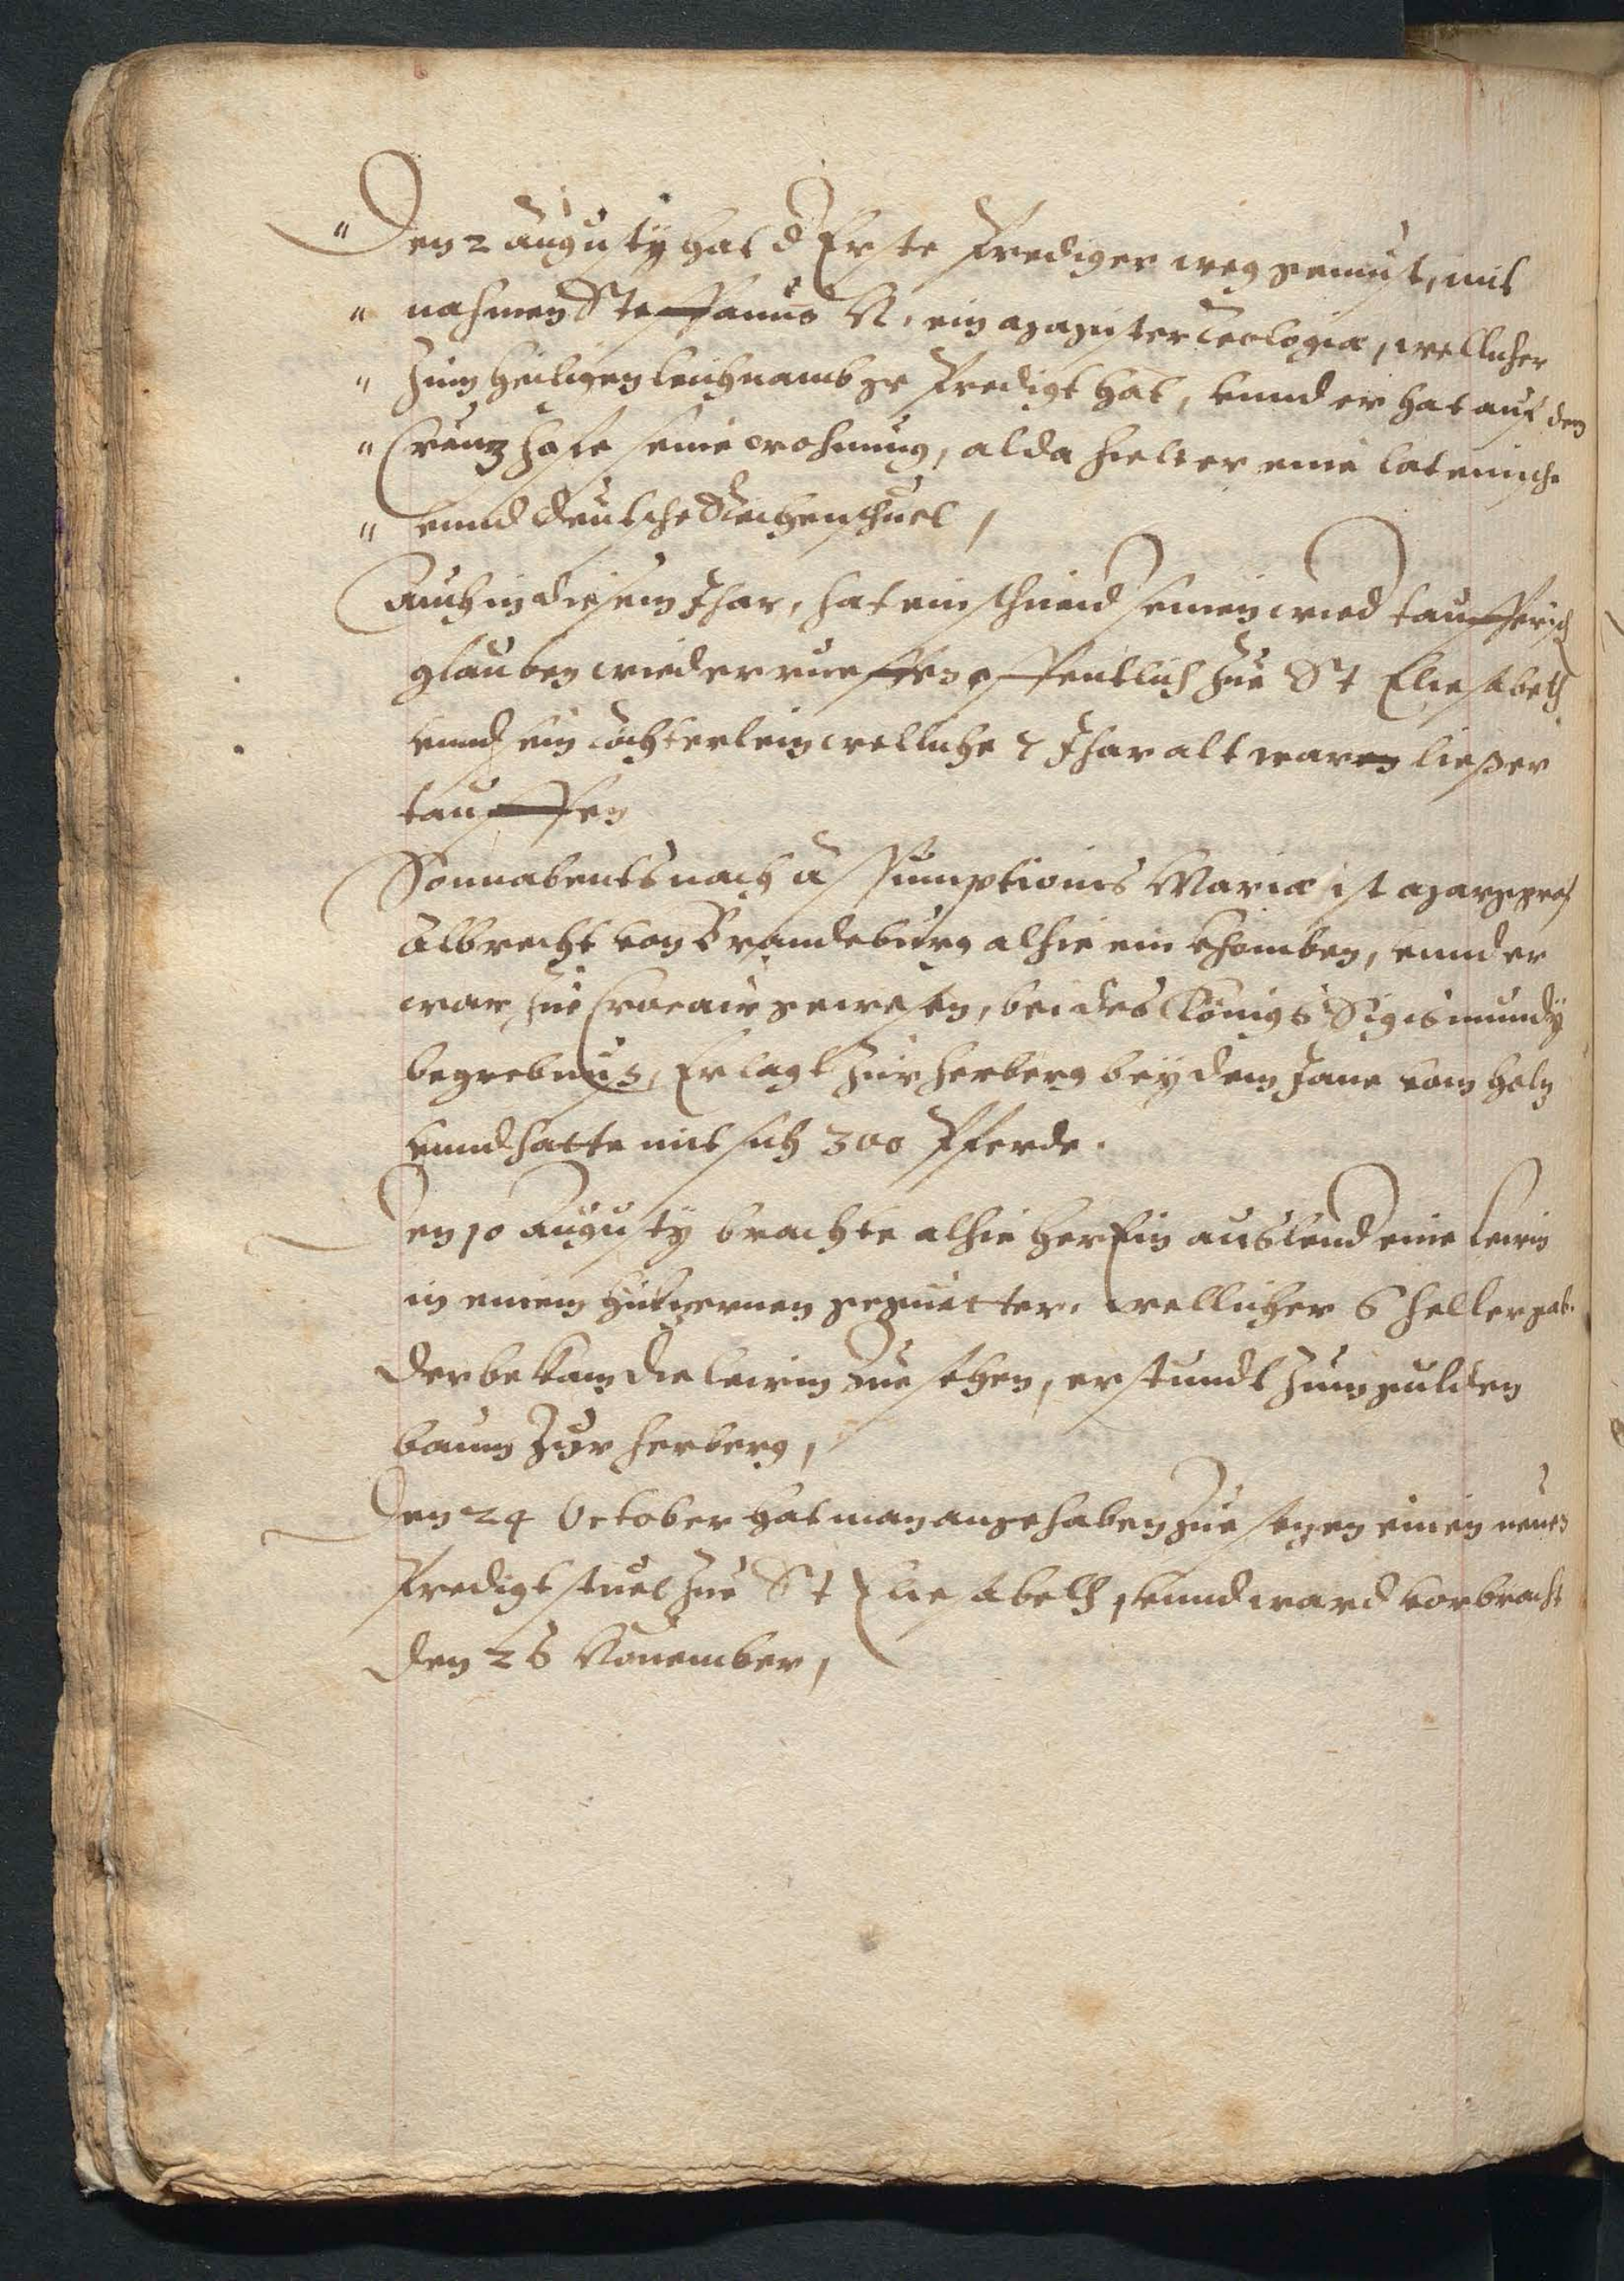 " Den 2 Augusty hat d Erste Prediger weg gemust, mit
" nahmen Steffanus N. ein Magister Teologiæ, wellicher
" Zum heiligen leichnamb ge Predigt hat, vnnd er hat auf dem
" Creutz hofe seine wohnung, alda hielt er eine lateinische
" vnnd Deutsche Kirchenschuel,
Auch in diesem Jhar, hat ein schneid seinen wied taufferisch
glauben wiederrueffen offentlich zue St Eliesabeth
vnnd ein töchterlein welliche 7 Jhar alt waren ließ er
tauffen
Sonnabents nach Assumptionis Mariæ ist Marggraf
Albrecht von Brandeburg alhie ein khomben, vnnd er
war zue Croca gewesen, bei des Königs Sigismundy
begrebnus, Er lagt zur herberg bey dem Jane vom Holtz
vnnd hatte mit sich 300 Pferde.
Den 10 Augusty brachte alhie her Ein auslend eine lewin
in einem hültzernen gegitter, wellicher 6 heller gab
der bekam die lewin zue sehen, er stundt zum gulden
baum zur herberg,
Den 24 October hat man angehaben zue setzen einen neuen
Predigtstuel zue St Eliesabeth, vnnd ward vorbracht
den 26 Nouember,